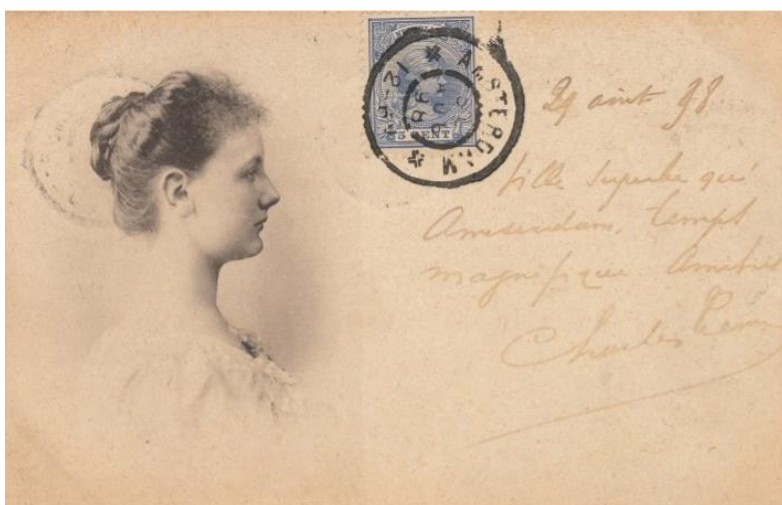 AMSTERDAM
12-5
AUG
98
5 CENT
29 août 98
ville superbe que
Amsterdam, temps
magnifique Amitiés
Charles